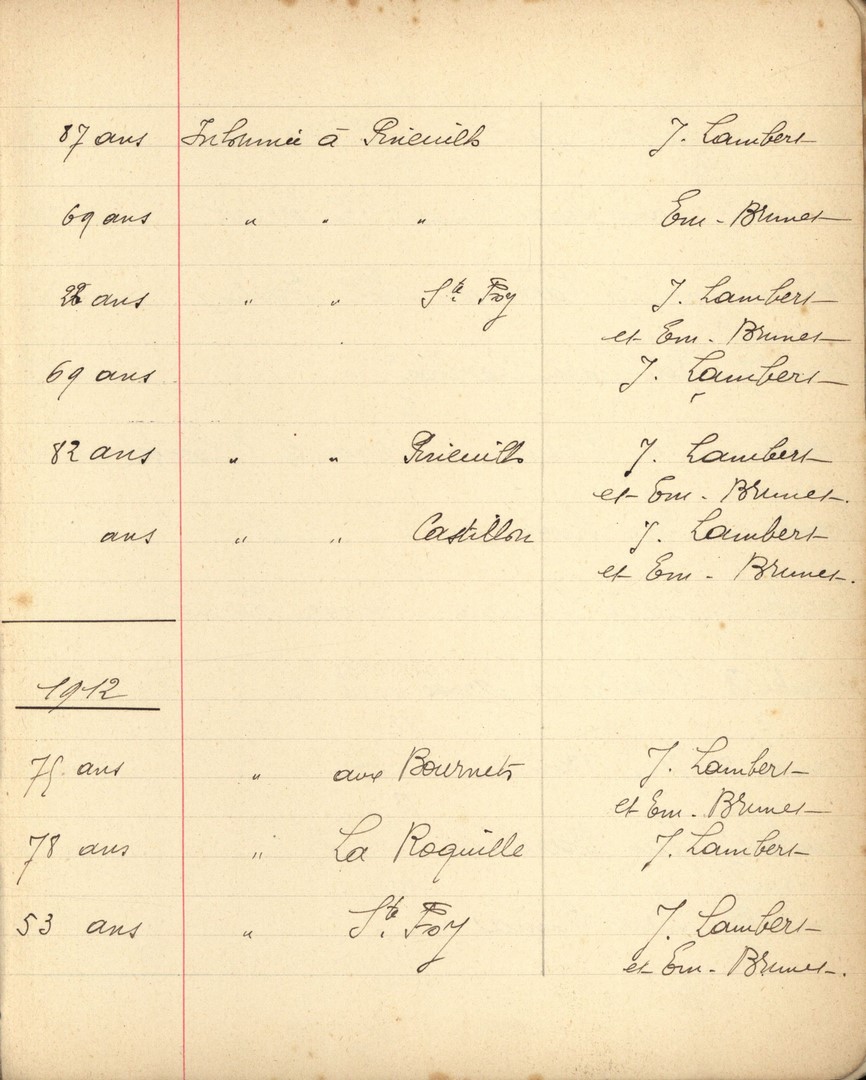 87 ans Inhumée à Prieuils J. Lambert
69 ans " " " Em. Brunet
ans " " Ste Foy J. Lambert
et Em. Brunet
69 ans J. Lambert
82 ans " " Prieuils J. Lambert
et Em. Brunet.
ans " " Castillon J. Lambert
et Em. Brunet.
1912
75 ans " aux Bournets J. Lambert
et Em. Brunet
78 ans " La Roquille J. Lambert
53 ans " Ste Foy J. Lambert
et Em. Brunet.